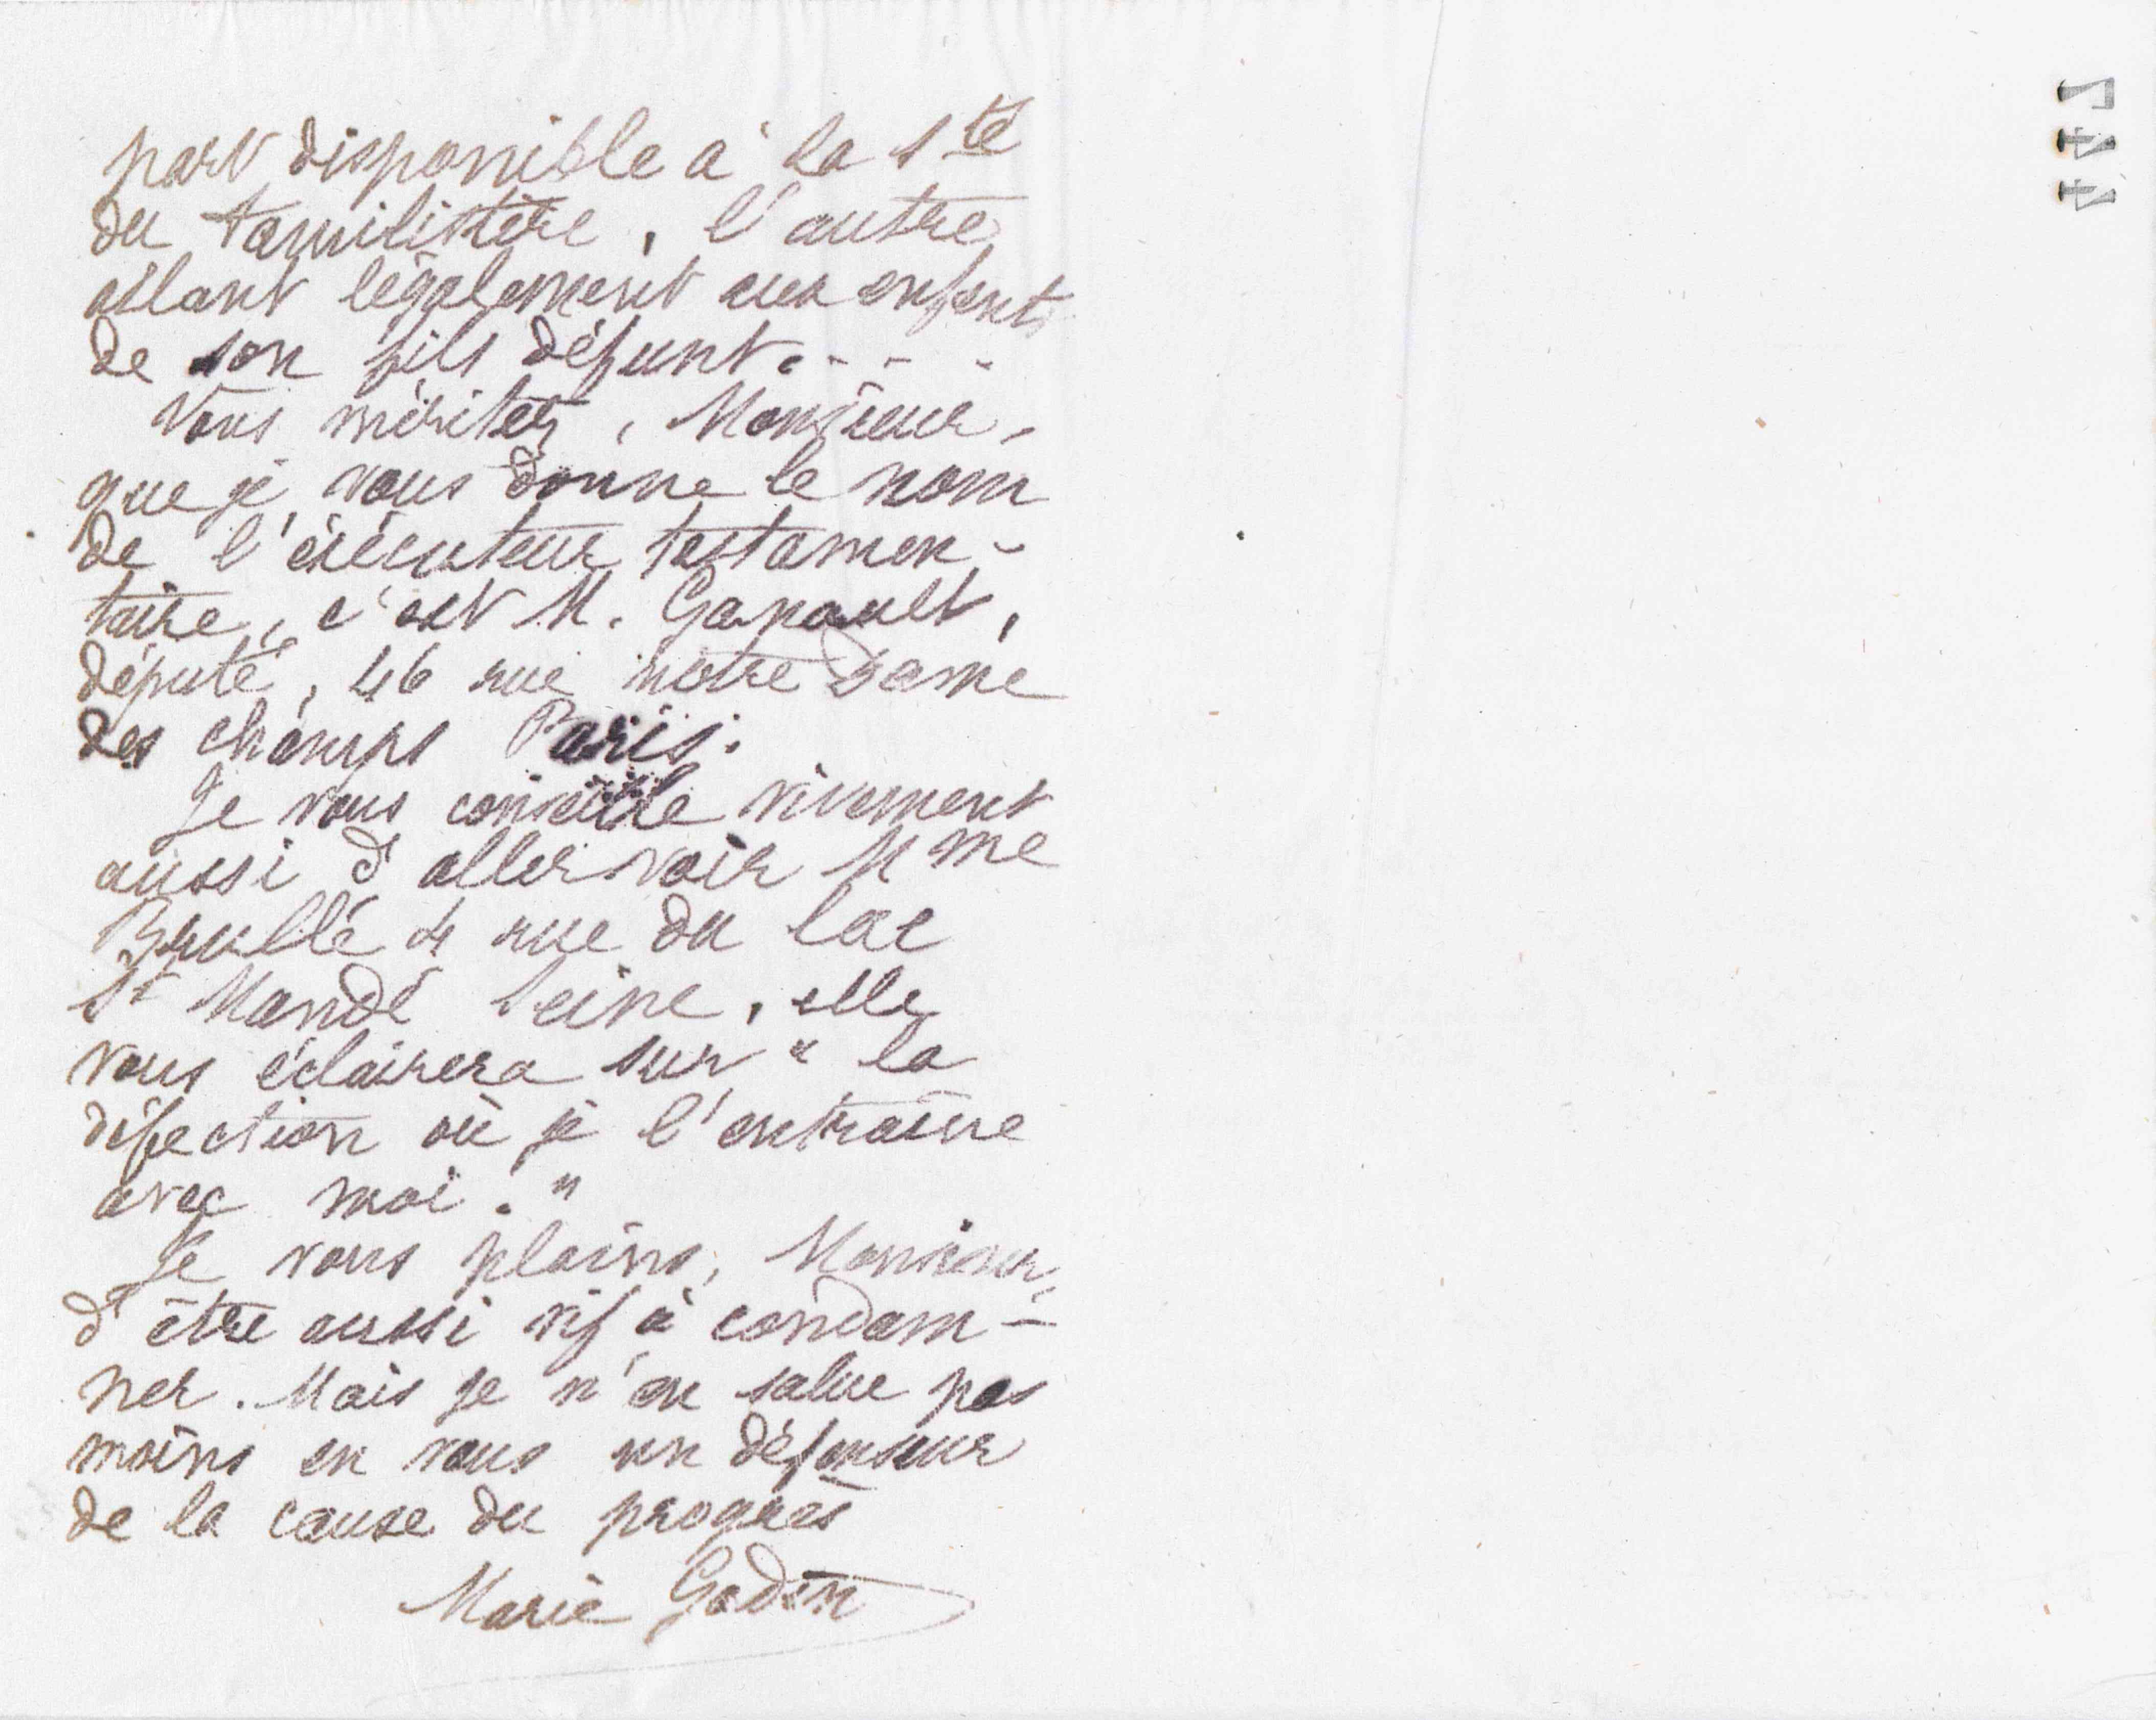 part disponible à la Sté
du Familistère, l'autre
allant légalement aux enfants
de son fils défunt. - - -
Vous méritez, Monsieur,
que je vous donne le nom
de l'exécuteur testamen-
taire, c'est M. Ganault,
député, 46 rue notre Dame
des champs Paris.
Je vous conseille vivement
aussi d'aller voir Mme
Brullé 4 rue du lac
St Mandé Seine, elle
vous éclairera sur "la
défection où je l'entraîne
avec moi."
Je vous plains, Monsieur,
d'être aussi vif à condam-
ner. Mais je n'en salue pas
moins en vous un défenseur
de la cause du progrès
Marie Godin